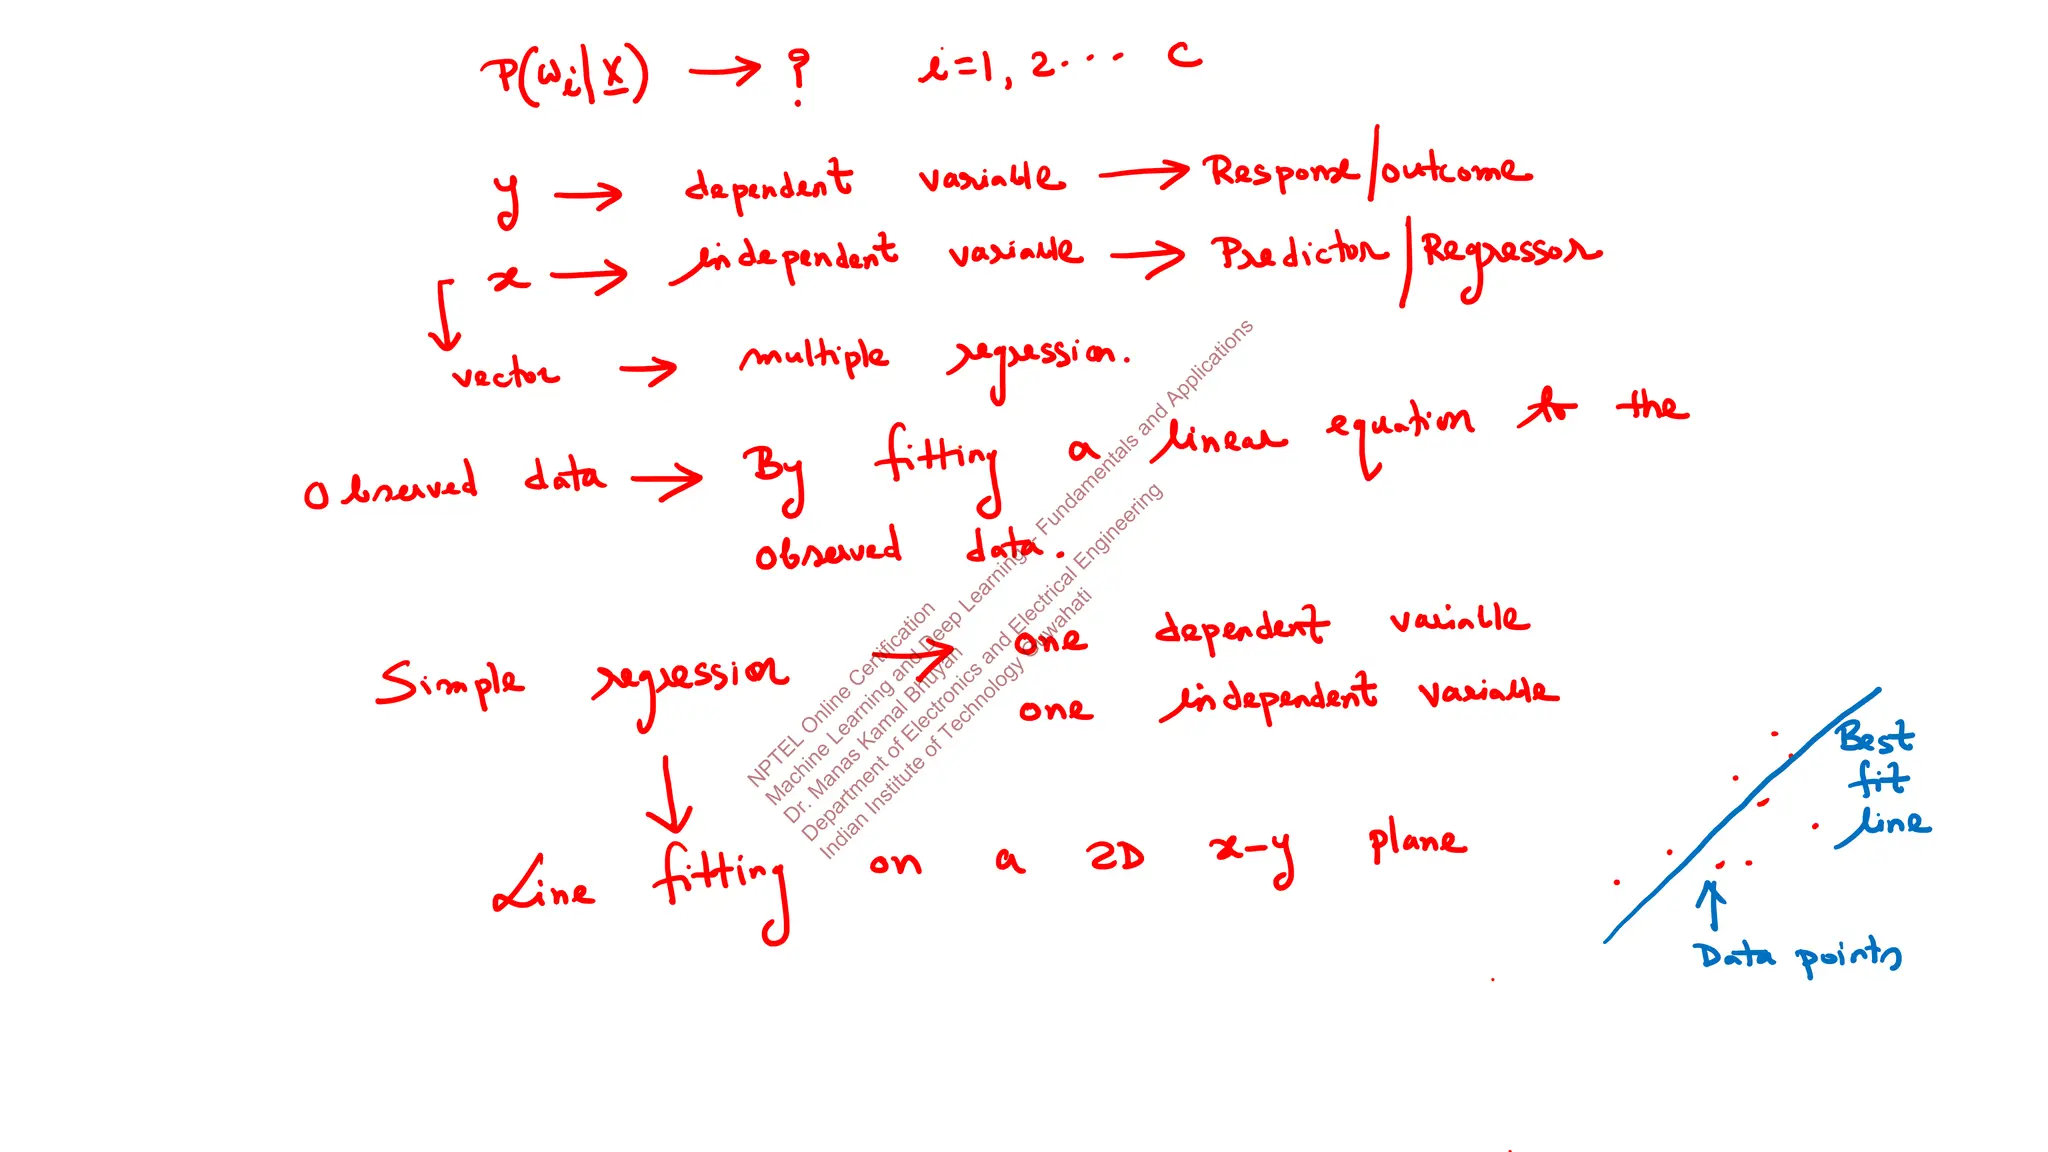 P(ωi|X) → ? i=1, 2... C
y → dependent variable → Response/outcome
x → independent variable → Predictor/Regressor
vector → multiple regression.
Observed data → By fitting a linear equation to the
observed data.
Simple regression → one dependent variable
one independent variable
Line fitting on a 2D x-y plane
Best
fit
line
Data points
NPTEL Online Certification
Machine Learning and Deep Learning - Fundamentals and Applications
Dr. Manas Kamal Bhuyan
Department of Electronics and Electrical Engineering
Indian Institute of Technology Guwahati